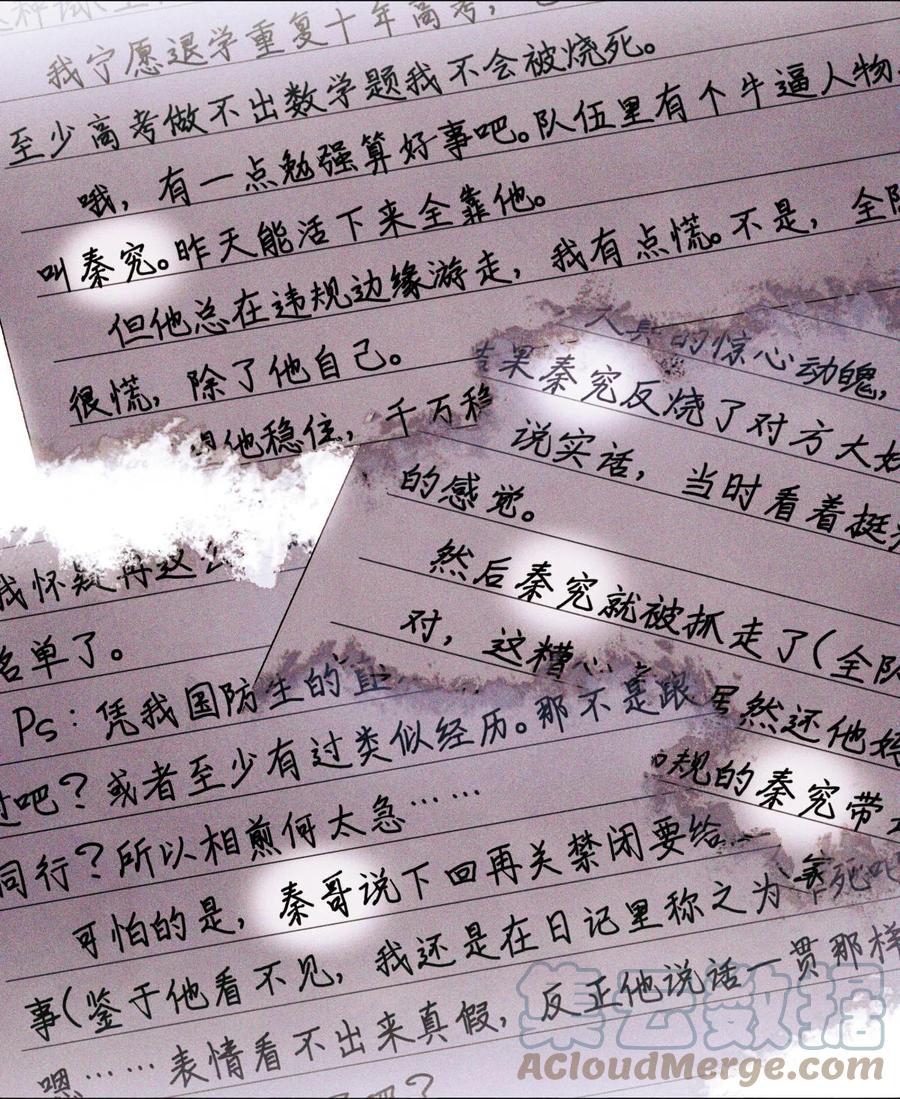 我宁愿退学重复十年高考，
至少高考做不出数学题我不会被烧死。
哦，有一点勉强算好事吧。队伍里有个牛逼人物，
叫秦究。昨天能活下来全靠他。
但他总在违规边缘游走，我有点慌。不是，全队
很慌，除了他自己。
他稳住，千万稳
的惊心动魄，
结果秦究反烧了对方大
说实话，当时看着挺
的感觉。
然后秦究就被抓走了（全队
对，这糟心
虽然还他
规的秦究带
我怀疑再这么
名单了。
Ps：凭我国防生的直
过吧？或者至少有过类似经历。那不是跟
同行？所以相煎何太急……
可怕的是，秦哥说下回再关禁闭要给
事（鉴于他看不见，我还是在日记里称之为
死吧
嗯……表情看不出来真假，反正他说话一贯那样
吧？
集云数据
ACloudMerge.com